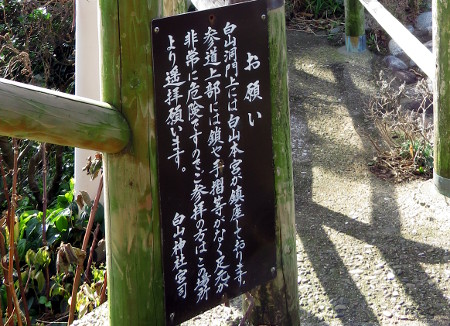 お願い
白山洞門上には白山本宮が鎮座しております。
参道上部には鎖や手摺等がなく足元が
非常に危険ですのでご参拝の方はこの場所
より遥拝願います。
白山神社宮司